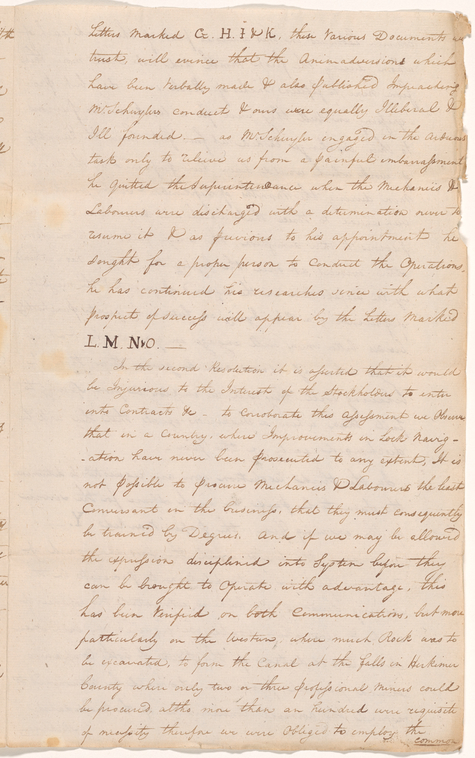 Letters Marked G. H. I & K, these Various Documents we
trust, will evince that the Animadversions which
have been Verbally made & also published Impeaching
Mr Schuyler conduct & ours were equally Illiberal &
Ill founded. — as Mr Schuyler engaged in the arduous
task only to relieve us from a painful embarrassment
he quitted the Superintendance when the Mechanics &
Labourers were discharged with a determination never to
resume it & as previous to his appointment he
sought for a proper person to Conduct the Operations,
he has continued his researches since with what
prospect of success will appear by the Letters Marked
L. M. N & O. —
In the second Resolution it is asserted that it would
be Injurious to the Interest of the Stockholders to enter
into Contracts & - to corroborate this assessment we Observe
that in a Country, where Improvements in Lock Navig-
-ation have never been prosecuted to any extent, It is
not possible to procure Mechanics & Labourers the least
Conversant in the business, that they must consequently
be trained by Degrees. And if we may be allowed
the expression disciplined into System before they
can be brought to Operate with advantage, this
has been Verified on both Communications, but more
particularly on the Western, where much Rock was to
be excavated, to form the Canal at the falls in Herkimer
County where only two or three professional Miners could
be procured, altho more than an hundred were requisite
of necessity therefore we were Obliged to employ the
common